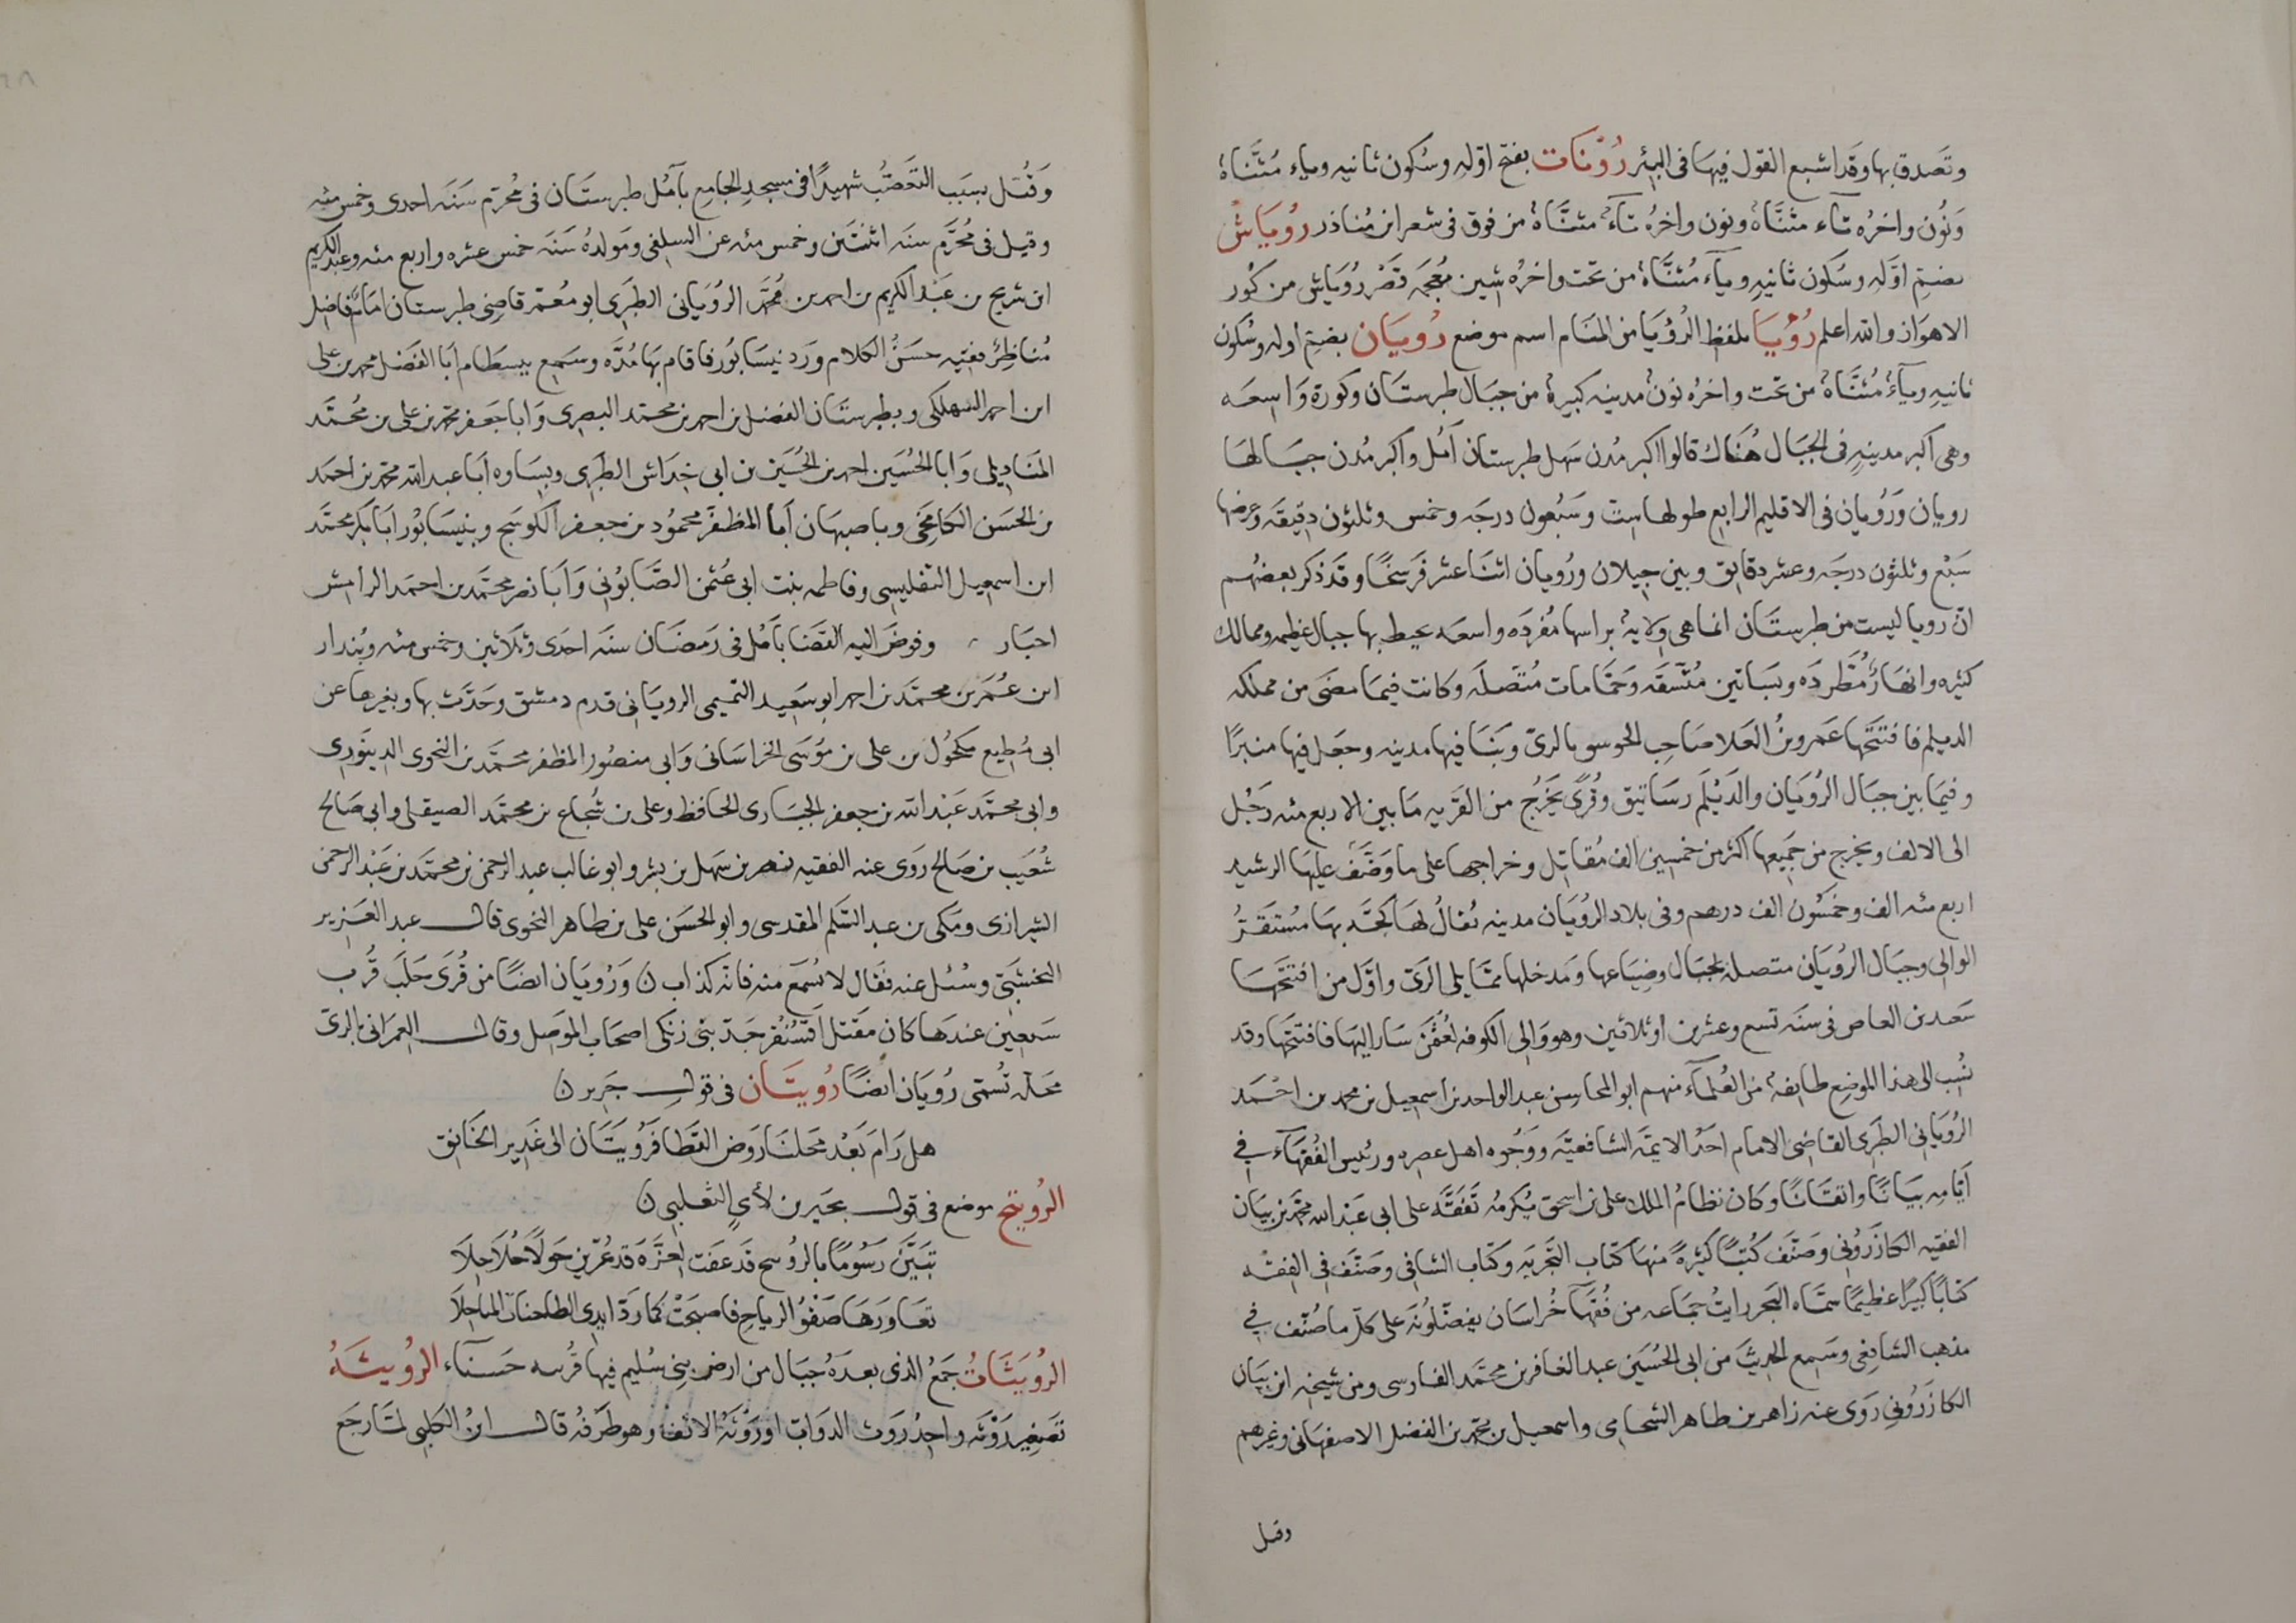 وتصدق بها وقد اشبع القول فيها في البئر رُوْنَات بفتح اوّله وسُكون ثانيه وياء مُثنَّاة
وَنُون واخرُه تاء مثنَّاة ونون واخرُه تآءٌ مثنَّاةٌ من فوق في شعر ابن مُناذر رُويَاشُ
بضمّ اوّله وسُكون ثانيهِ ويآء مُثنَّاةٌ من تحت واخرُه شين مُعجمه قَصْر رُوَيَاش من كُور
الاهوَاز والله اعلم رُؤْيَا بلفظ الرُؤيَا من المنَام اسم موضع رُويَان بضمّ اوله وسُكون
ثانيهِ ويآءٌ مُثنَّاةٌ من تحت واخرُه نونٌ مدينه كبيرةٌ من جبَال طبرستَان وكورة وَاسعَه
وهي اكبر مدينهٍ في الجبَال هُنَاك قالوا اكبر مُدن سهل طبرستان آمُل واكبر مُدن جبَالهَا
رويان وَرُويان في الاقليم الرابع طولها ست وسَبْعون درجَه وخمس وثلثون دقيقَه وعرضها
سَبْع وثلثون درجَه وعشر دقايق وبين جيلان ورُويان اثنَا عشر فَرسَخًا وقَد ذكر بعضهُم
انّ رويا ليست من طبرستَان انما هي ولايهٌ براسها مُفرَده واسعَه يحيط بها جبال عظيمه وممالك
كثيره وانهَارٌ مُطَّرِدَه وبسَاتين مُتَّسقَه وَحمَّامات مُتَّصلَه وكانت فيمَا مضَى من مملكه
الديلم فافتتحَها عَمرو بنُ العَلا صَاحِب الجوسق بالريّ وَبَنَا فيها مدينه وجعَل فيها منبرًا
وفيمَا بين جبَال الرُويَان والدَيْلَم رسَاتيق وقُرًى يَخرُج من القَريه مَا بين الاربع مئه رَجُل
الى الالف ويخرج من جَميعها اكثر من خمسين الف مُقاتِل وخراجها على ما وَضَّفَ عليهَا الرشيد
اربع مئه الف وخمسُون الف درهم وفي بلاد الرُويَان مدينه يُقالُ لهَا كَجَّه بهَا مُستَقَرُّ
الوالى وجبَال الرُويَان متصلهٌ بجبَال وضيَاعها وَمَدخلها ممَّا يلي الريّ واوّل من افتتحَها
سَعد بن العاص في سنَه تسع وعشرين او ثلاثين وهو وَالى الكوفه لعُثمٰنَ سَار اليهَا فافتتحَها وقد
نُسِب الى هذا الموضِع طايفهٌ من العُلمآء منهم ابو المحاسن عبد الواحد بن اسمعيل بن محمد بن احْمَد
الرُويَاني الطبَرى القاضي الامام احَدُ الايمّه الشافعيَّه ووُجوه اهل عصره ورئيس الفُقهَآء في
ايّامِه بيَانًا واتقَانًا وكان نظامُ الملك على بن اسحق يُكرمُه تَفقَّه على ابي عبد الله محمّد بن بيَان
الفقيه الكازَرُوني وصَنَّف كُتبًا كثيرةً منهَا كتَاب التَجربَه وكتَاب الشافي وصَنّف في الفِقه
كتَابًا كبيرًا عظيمًا سمَّاه البَحر رايتُ جمَاعه من فُقهَآ خُراسَان يفضّلُونَه على كلّ ما صُنّف في
مذهب الشافِعي وسَمع الحديثَ من ابى الحُسَين عبد الغافر بن محمَّد الفارسى ومن شيخه ابن بيَان
الكازَرُوني رَوى عنه زاهر بن طاهر الشحامي واسمعيل بن محمّد بن الفضل الاصفهَاني وغيرهم
وقيل
وَقُتل بسبَب التعَصُّب شهيدًا في مسجدِ الجامع بآمُل طبرستَان في مُحرّم سَنَه احدى وخمس مئه
وقيل في مُحَرَّم سنَه اثنتَين وخمس مئه عن السلفي ومَولدهُ سَنَه خمس عشره واربع مئه وعبد الكريم
ابن شريح بن عَبْد الكريم بن احمد بن مُحمَّد الرُوَياني الطبَرى ابو مُعمّر قاضِى طبرستان امامٌ فاضِل
مُناظِرٌ فقيه حسَنُ الكلام وَرَد نيسَابُور فاقام بهَا مُدَّه وسَمِع ببسطام ابَا الفضل محمد بن على
ابن احمد السهلكي وبطبرستَان الفضل بن احمد بن محمّد البصرى وَابا جعَفر محمّد بن على بن محُمَّد
المنَاديلى وَابا الحُسَين احمد بن الحُسَين بن ابى خِدَاش الطبَرِى وبِسَاوه ابَا عبد الله محمّد بن احمَد
بن الحسَن الكامخى وباصبهَان ابَا المظفَّر محمُود بن جعفر الكوسَج وبنيسَابُور ابَا بكر محمَّد
ابن اسمعيل التفليسى وفاطمه بنت ابي عُثمٰن الصَّابُوني وَابَا نصر محمَّد بن احمَد الرامش
احبَار وفوضَ اليه القضَا بآمُل في رَمضَان سنَه احدَى وثلَاثين وخمس مئه وبُندار
ابن عُمَر بن محمَّد بن احمد ابو سَعيد التميمى الرويَاني قدم دمشق وحَدَّث بها وبغيرها عن
ابى مُطِيع مكحُول بن على بن مؤسَى الخراسَاني وَابي منصُور المظفر محَمَّد بن النحوى الدينَورى
وابي محمَّد عَبْد الله بن جعفر الجبَارى الحافظ وعلى بن شُجاع بن محمَّد الصيقلى وابى صَالح
شُعَيب بن صَالح رَوى عنه الفقيه نصر بن سَهل بن بشر وابو غالب عبد الرحمٰن بن محمَّد بن عَبْد الرحمٰن
الشيرازى ومَكّى بن عبد السّلم المقدسى وابو الحَسَن على بن طاهر النحوى قال عبد العَزير
النخشَبيّ وسُئل عنه فقَال لا يُسمَع منه فانّه كذاب ن وَرُويَان ايضًا من قُرَى حَلَب قُرب
سَبعين عندهَا كان مَقتل اقسُنقر جَدّ بني زنكى اصحَاب المَوَصِل وقال العِمراني بالريّ
محَلّه تُسمّى رُويَان ايضًا رُويتَان في قول جَرير ن
هل رَامَ بَعْد محَلنَا رَوض القَطا فَرُويتَان الى غَدير الخَانق
الرُويتج موضع في قول بحَير بن لأيٍ الثعلبى ن
تبَيَّن رَسُومًا بالروُسح قد عفَت لعزَّهَ قد عُرّين حَولًا حُلَاحِلَا
تعَاوَرهَا صَفْقُ الرياح فاصبحَتْ كما رَدّ ايدى الطاحنات المناخِلَا
الرُوَيثَاتُ جَمعُ الذى بعدَهُ جبَال من ارض بني سُليم فيها قُرسه حَسنآء الرُويشَهُ
تصَغير رَوْثه واحِدُ رَوث الدوَابّ اورَوْثَهُ الانف وهو طَرَفُه قال ابنُ الكلبى لمّا رجَع